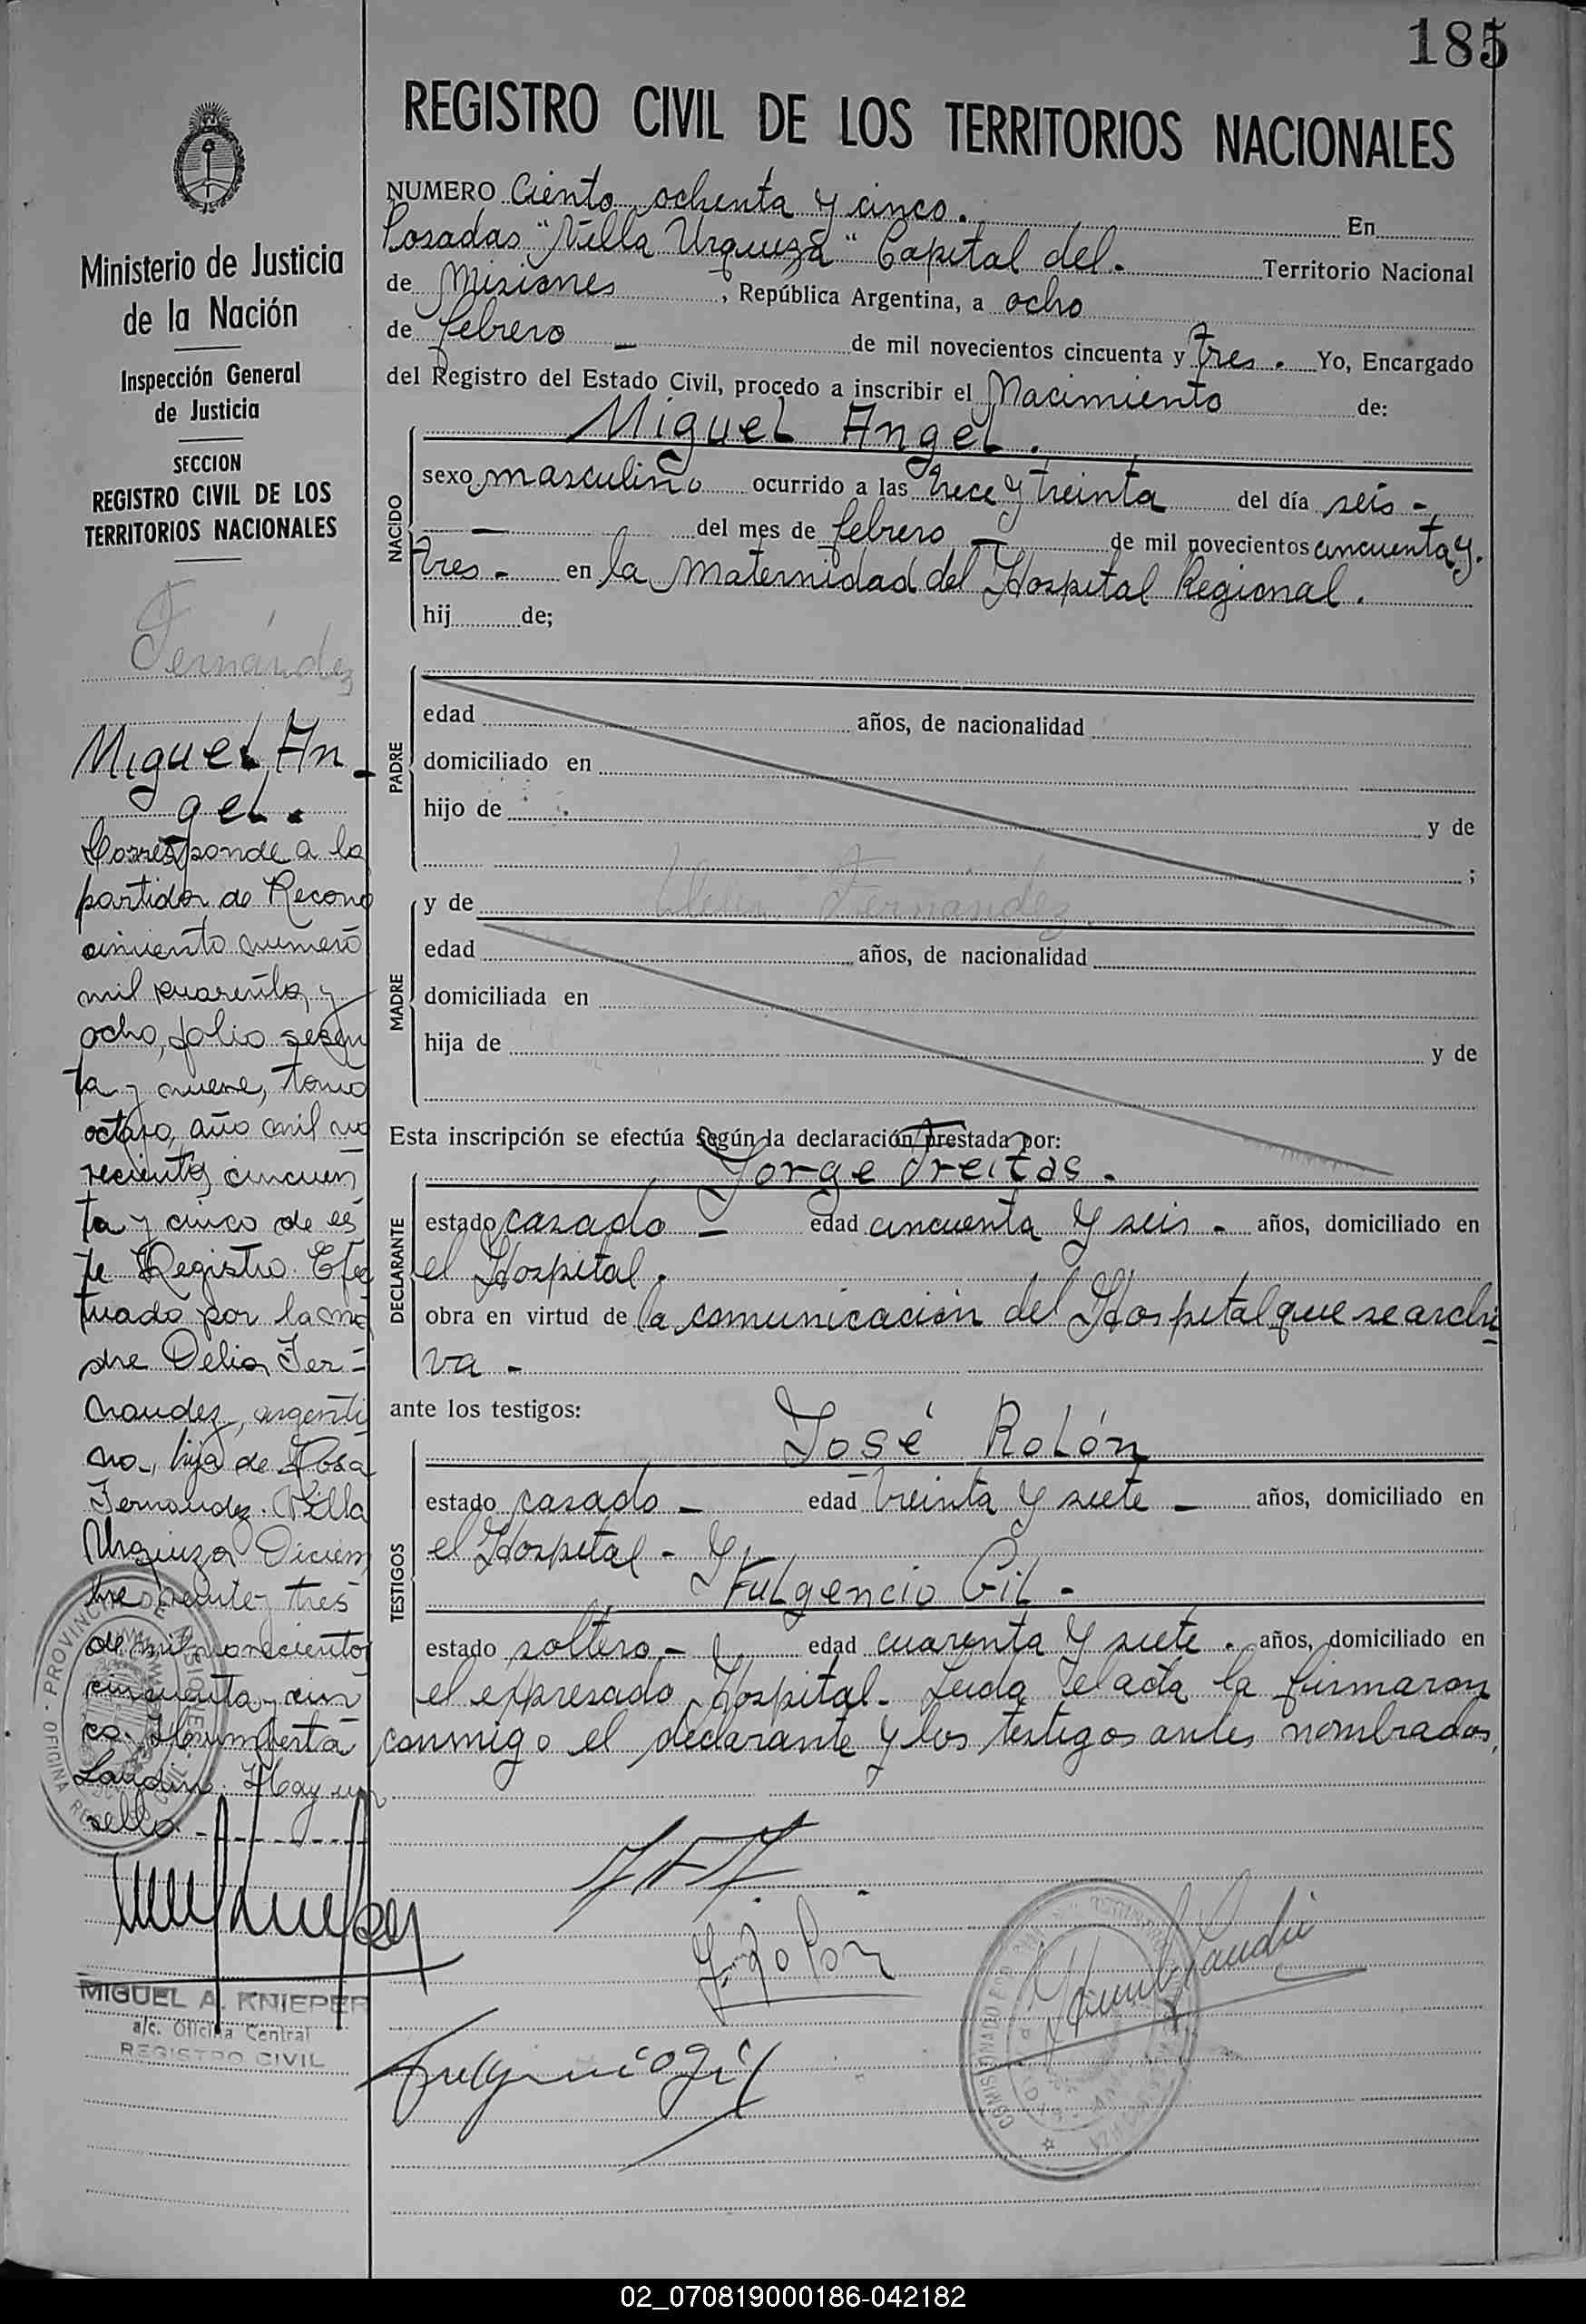 185
REGISTRO CIVIL DE LOS TERRITORIOS NACIONALES
Ministerio de Justicia
de la Nación
Inspección General
de Justicia
SECCION
REGISTRO CIVIL DE LOS
TERRITORIOS NACIONALES
Fernández
Miguel An-
gel.
Corresponde a la
partida de Recono
cimiento numero
mil cuarenta y
ocho, folio sesen
ta y nueve, tomo
octavo, año mil no
vecientos cincuen
ta y cinco de es
te Registro. Efec
tuado por la ma
dre Delia Fer-
nandez, argenti
na, hija de Rosa
Fernandez. Villa
Urquiza Diciem
bre veinte y tres
de mil novecientos
cincuenta y cin
co. Humberto
Landin. Hay un
sello.
MIGUEL A. KNIEPER
a/c. Oficina Central
REGISTRO CIVIL
NUMERO Ciento ochenta y cinco. En
Posadas "Villa Urquiza" Capital del. Territorio Nacional
de Misiones, República Argentina, a ocho
de febrero - de mil novecientos cincuenta y tres. Yo, Encargado
del Registro del Estado Civil, procedo a inscribir el Nacimiento de:
Miguel Angel.
NACIDO
sexo masculino ocurrido a las trece y treinta del día seis -
- del mes de febrero - de mil novecientos cincuenta y
tres - en la maternidad del Hospital Regional.
hij de;
PADRE
edad años, de nacionalidad
domiciliado en
hijo de y de
;
MADRE
y de Fernandez
edad años, de nacionalidad
domiciliada en
hija de y de
Esta inscripción se efectúa según la declaración prestada por:
Jorge Freitas.
DECLARANTE
estado casado - edad cincuenta y seis - años, domiciliado en
el Hospital.
obra en virtud de la comunicación del Hospital que se archi
va -
ante los testigos:
José Rolón
TESTIGOS
estado casado - edad treinta y siete - años, domiciliado en
el Hospital - y
Fulgencio Gil -
estado soltero - edad cuarenta y siete. años, domiciliado en
el expresado Hospital. Leida el acta la firmaron
conmigo el declarante y los testigos antes nombrados.
J. Rolon
Fulgencio Gil
02_070819000186-042182